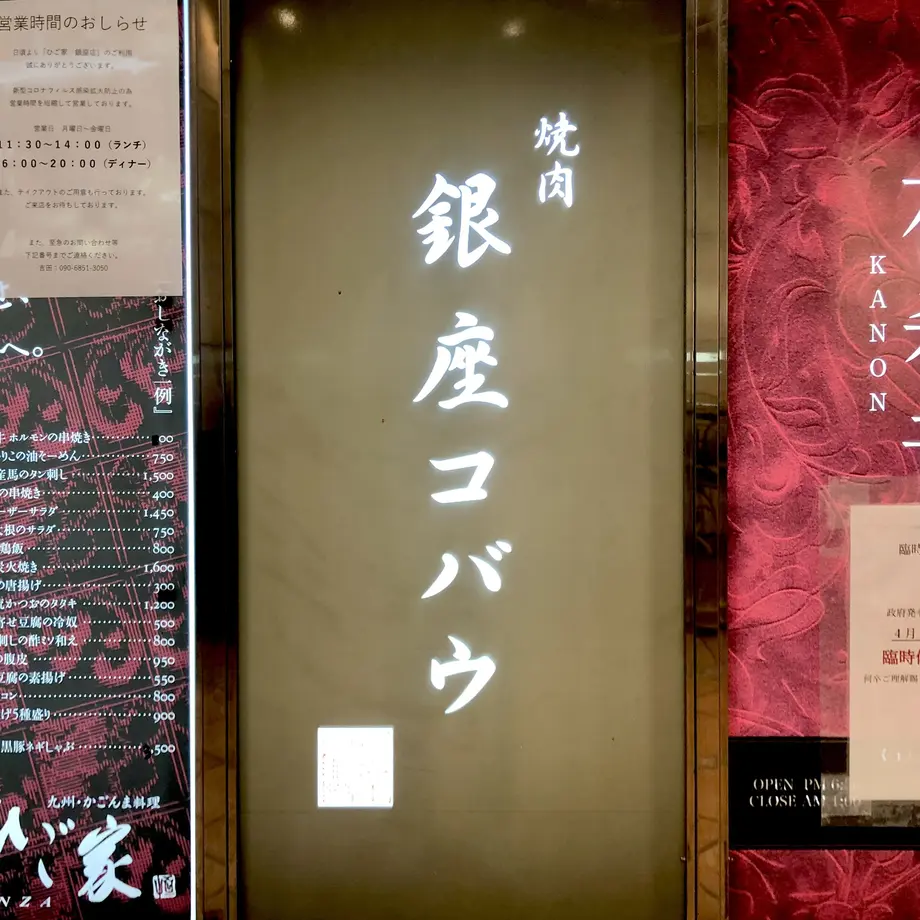 営業時間のおしらせ
日頃より「ひご家 銀座店」のご利用
誠にありがとうございます。
新型コロナウィルス感染拡大防止の為
営業時間を短縮して営業しております。
営業日 月曜日〜金曜日
11：30〜14：00（ランチ）
6：00〜20：00（ディナー）
また、テイクアウトのご用意も行っております。
ご来店をお待ちしております。
また、至急のお問い合わせ等
下記番号までご連絡ください。
吉田：090-6851-3050
へ。
おしながき一例』
ホルモンの串焼き
りこの油そーめん 750
産馬のタン刺し 1,500
の串焼き 400
ーザーサラダ 1,450
大根のサラダ 750
鶏飯 800
炭火焼き 1,600
の唐揚げ 300
かつおのタタキ 1,200
寄せ豆腐の冷奴 500
刺しの酢ミソ和え 800
の腹皮 950
豆腐の素揚げ 550
コン 800
げ5種盛り 900
黒豚ネギしゃぶ
九州・かごんま料理
ひご家
NZA
焼肉
銀座コバウ
KANON
臨時
4月
臨時
OPEN PM 6:
CLOSE AM 1:00